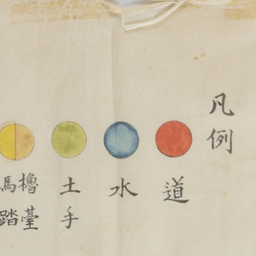 凡例
道
水
土手
櫓臺
馬踏